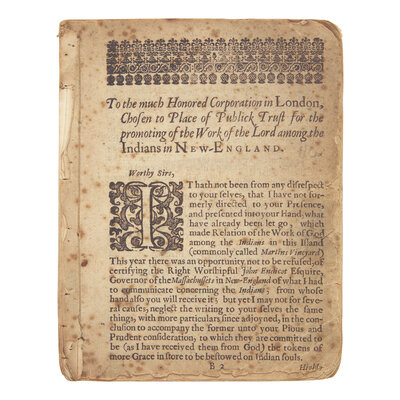 To the much Honored Corporation in London,
Chosen to Place of Publick Trust for the
promoting of the Work of the Lord among the
Indians in NEW-ENGLAND.
Worthy Sirs,
IT hath not been from any disrespect
to your selves, that I have not for-
merly directed to your Presence,
and presented into your Hand what
have already been let go, which
made Relation of the Work of God
among the Indians in this Island
(commonly called Martins Vineyard)
This year there was an opportunity not to be refused, of
certifying the Right Worshipful John Endicot Esquire,
Governor of the Massachussets in New-England of what I had
to communicate concerning the Indians; from whose
hand also you will receive it; but yet I may not for seve-
ral causes, neglect the writing to your selves the same
things, with more particulars since adjoyned, in the con-
clusion to accompany the former unto your Pious and
Prudent consideration, to which they are committed to
be (as I have received them from God) the tokens of
more Grace in store to be bestowed on Indian souls.
B 2